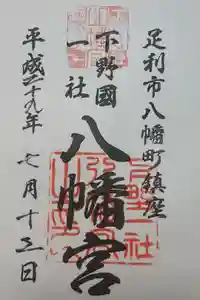 足利市八幡町鎮座
下野國
一社
八幡宮
平成二十九年
七月十三日